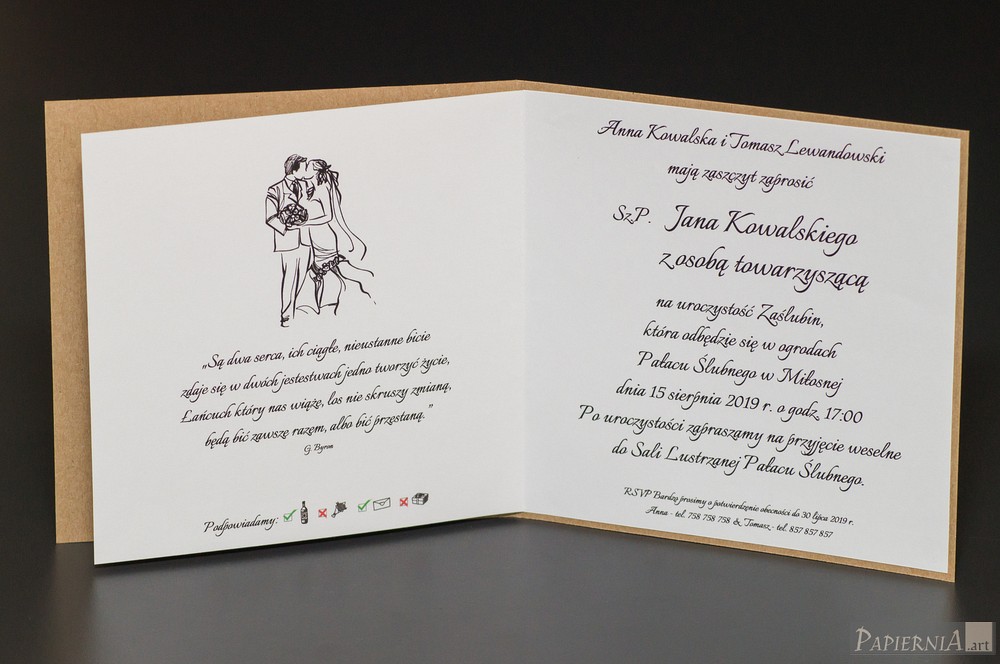 „Są dwa serca, ich ciągłe, nieustanne bicie
zdaje się w dwóch jestestwach jedno tworzyć życie,
Łańcuch który nas wiąże, los nie skruszy zmianą,
będą bić zawsze razem, albo bić przestaną.”
G. Byron
Podpowiadamy:
Anna Kowalska i Tomasz Lewandowski
mają zaszczyt zaprosić
Sz.P. Jana Kowalskiego
z osobą towarzyszącą
na uroczystość Zaślubin,
która odbędzie się w ogrodach
Pałacu Ślubnego w Miłosnej
dnia 15 sierpnia 2019 r. o godz. 17:00
Po uroczystości zapraszamy na przyjęcie weselne
do Sali Lustrzanej Pałacu Ślubnego.
RSVP Bardzo prosimy o potwierdzenie obecności do 30 lipca 2019 r.
Anna - tel. 758 758 758 & Tomasz - tel. 857 857 857
PAPIERNIA.art